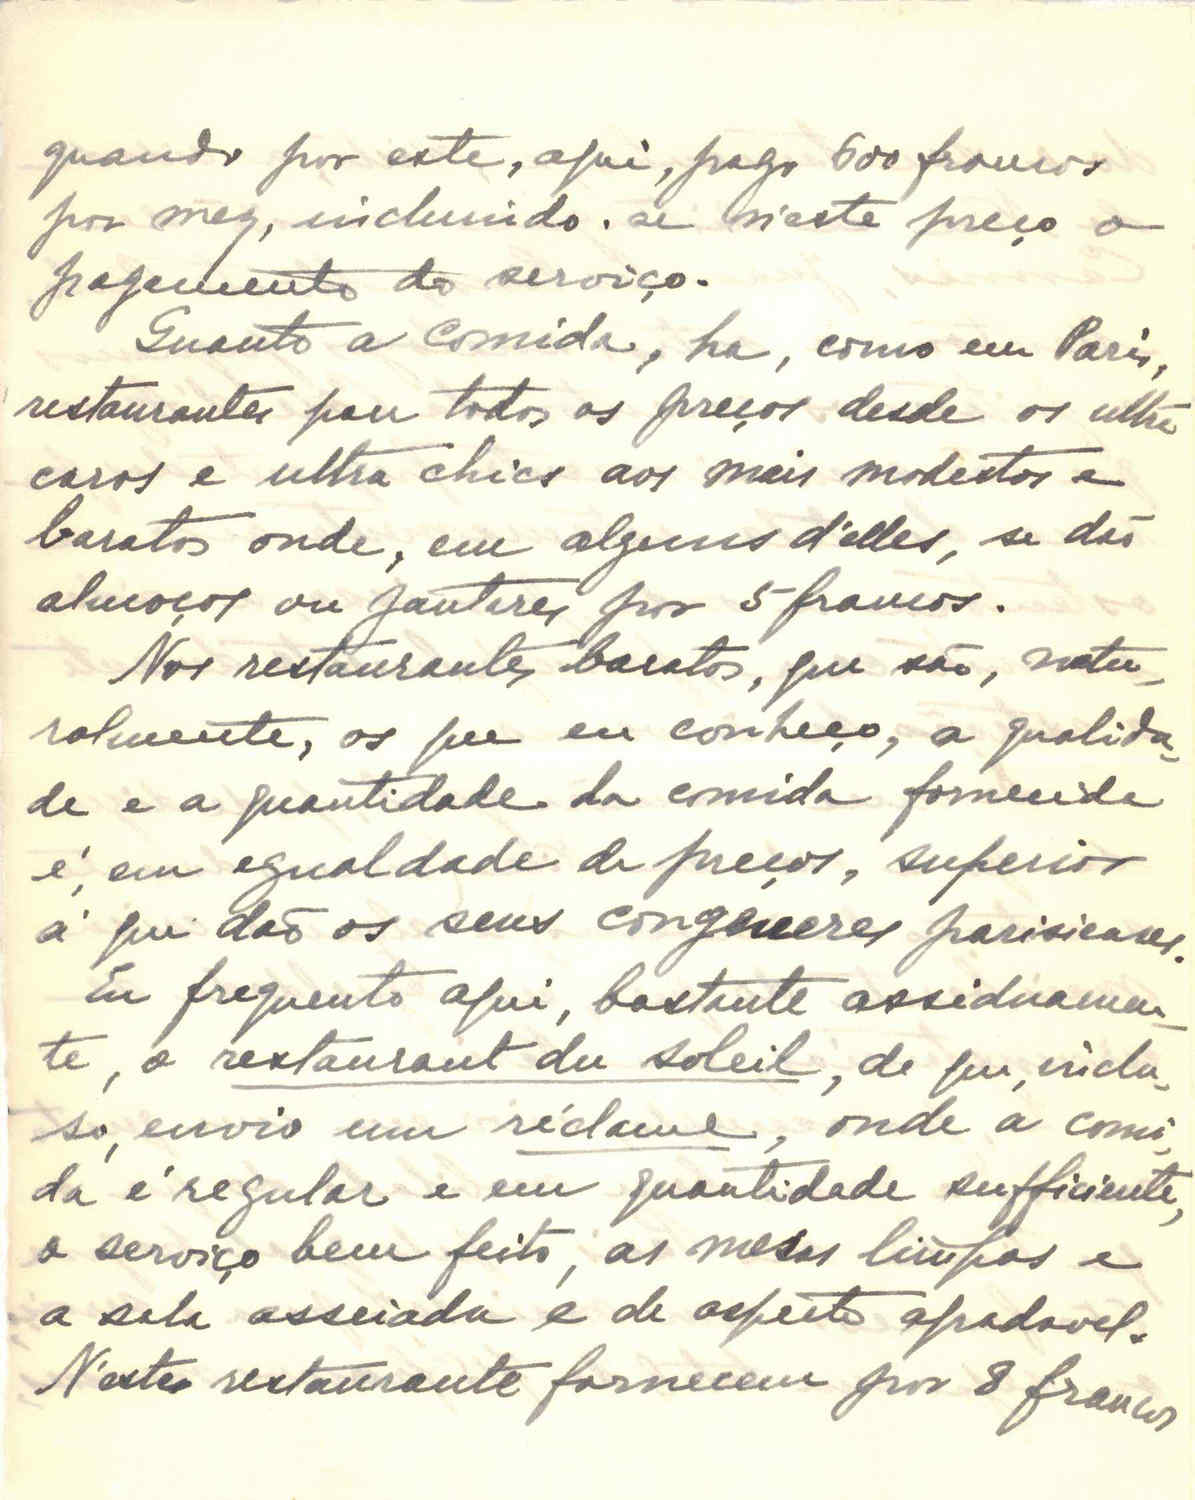 quando por este, aqui, pago 600 francos
por mez, incluindo-se n'este preço o
pagamento do serviço.
Quanto a comida, ha, como em Paris,
restaurantes para todos os preços desde os ultra
caros e ultra chics aos mais modestos e
baratos onde, em alguns d'elles, se dão
almoços ou jantares por 5 francos.
Nos restaurantes baratos, que são, natu-
ralmente, os que eu conheço, a qualida-
de e a quantidade da comida fornecida
é, em egualdade de preços, superior
á que dão os seus congeneres parisienses.
Eu frequento aqui, bastante assiduamen-
te, o restaurant du soleil, de que, inclu-
so, envio um réclame, onde a comi-
da é regular e em quantidade sufficiente,
o serviço bem feito, as mesas limpas e
a sala asseiada e de aspecto agradavel.
N'este restaurante fornecem por 8 francos